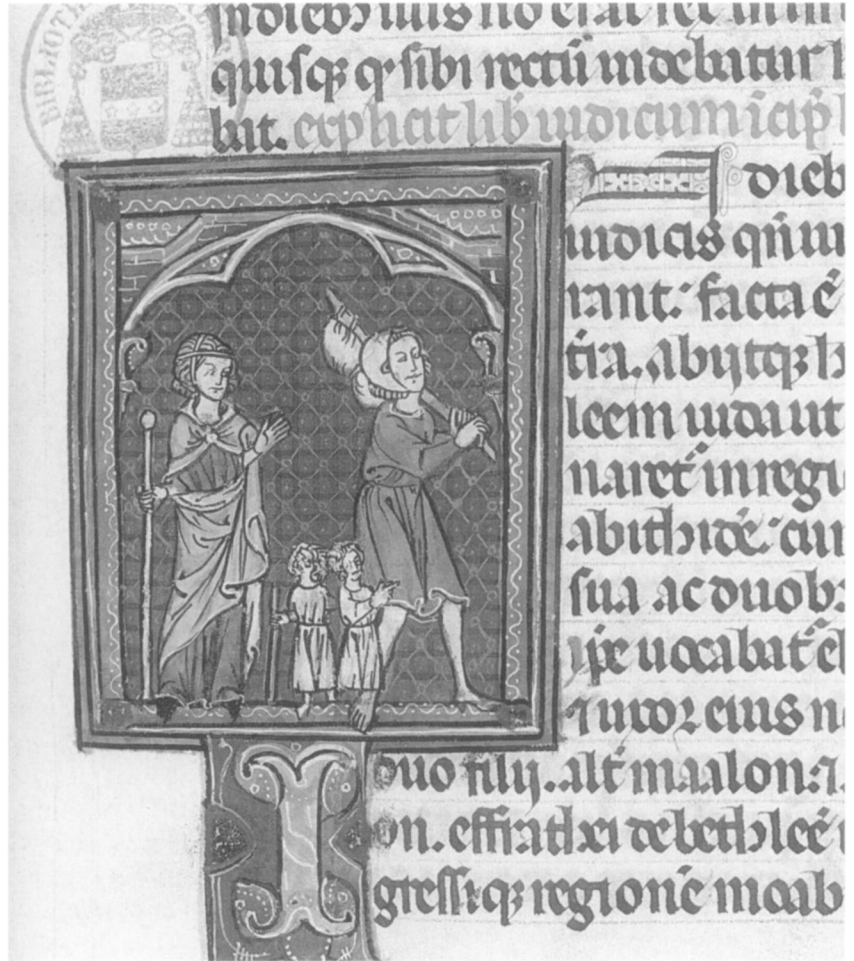 BIBLIOTH
quisq; q sibi rectū uidebatur
bat. explicit lib iudicum īcip
I
dieb
iudicis qn̄ iu
rant. facta ē
t̄ra. abijtq;
leem iuda ut
naret in regi
abitide.
sua ac duob
ip̄e uocabat
uxor eius n
duo filij. alt maalon. 7
on. effrathei de bethleē
gressiq; regionē moab